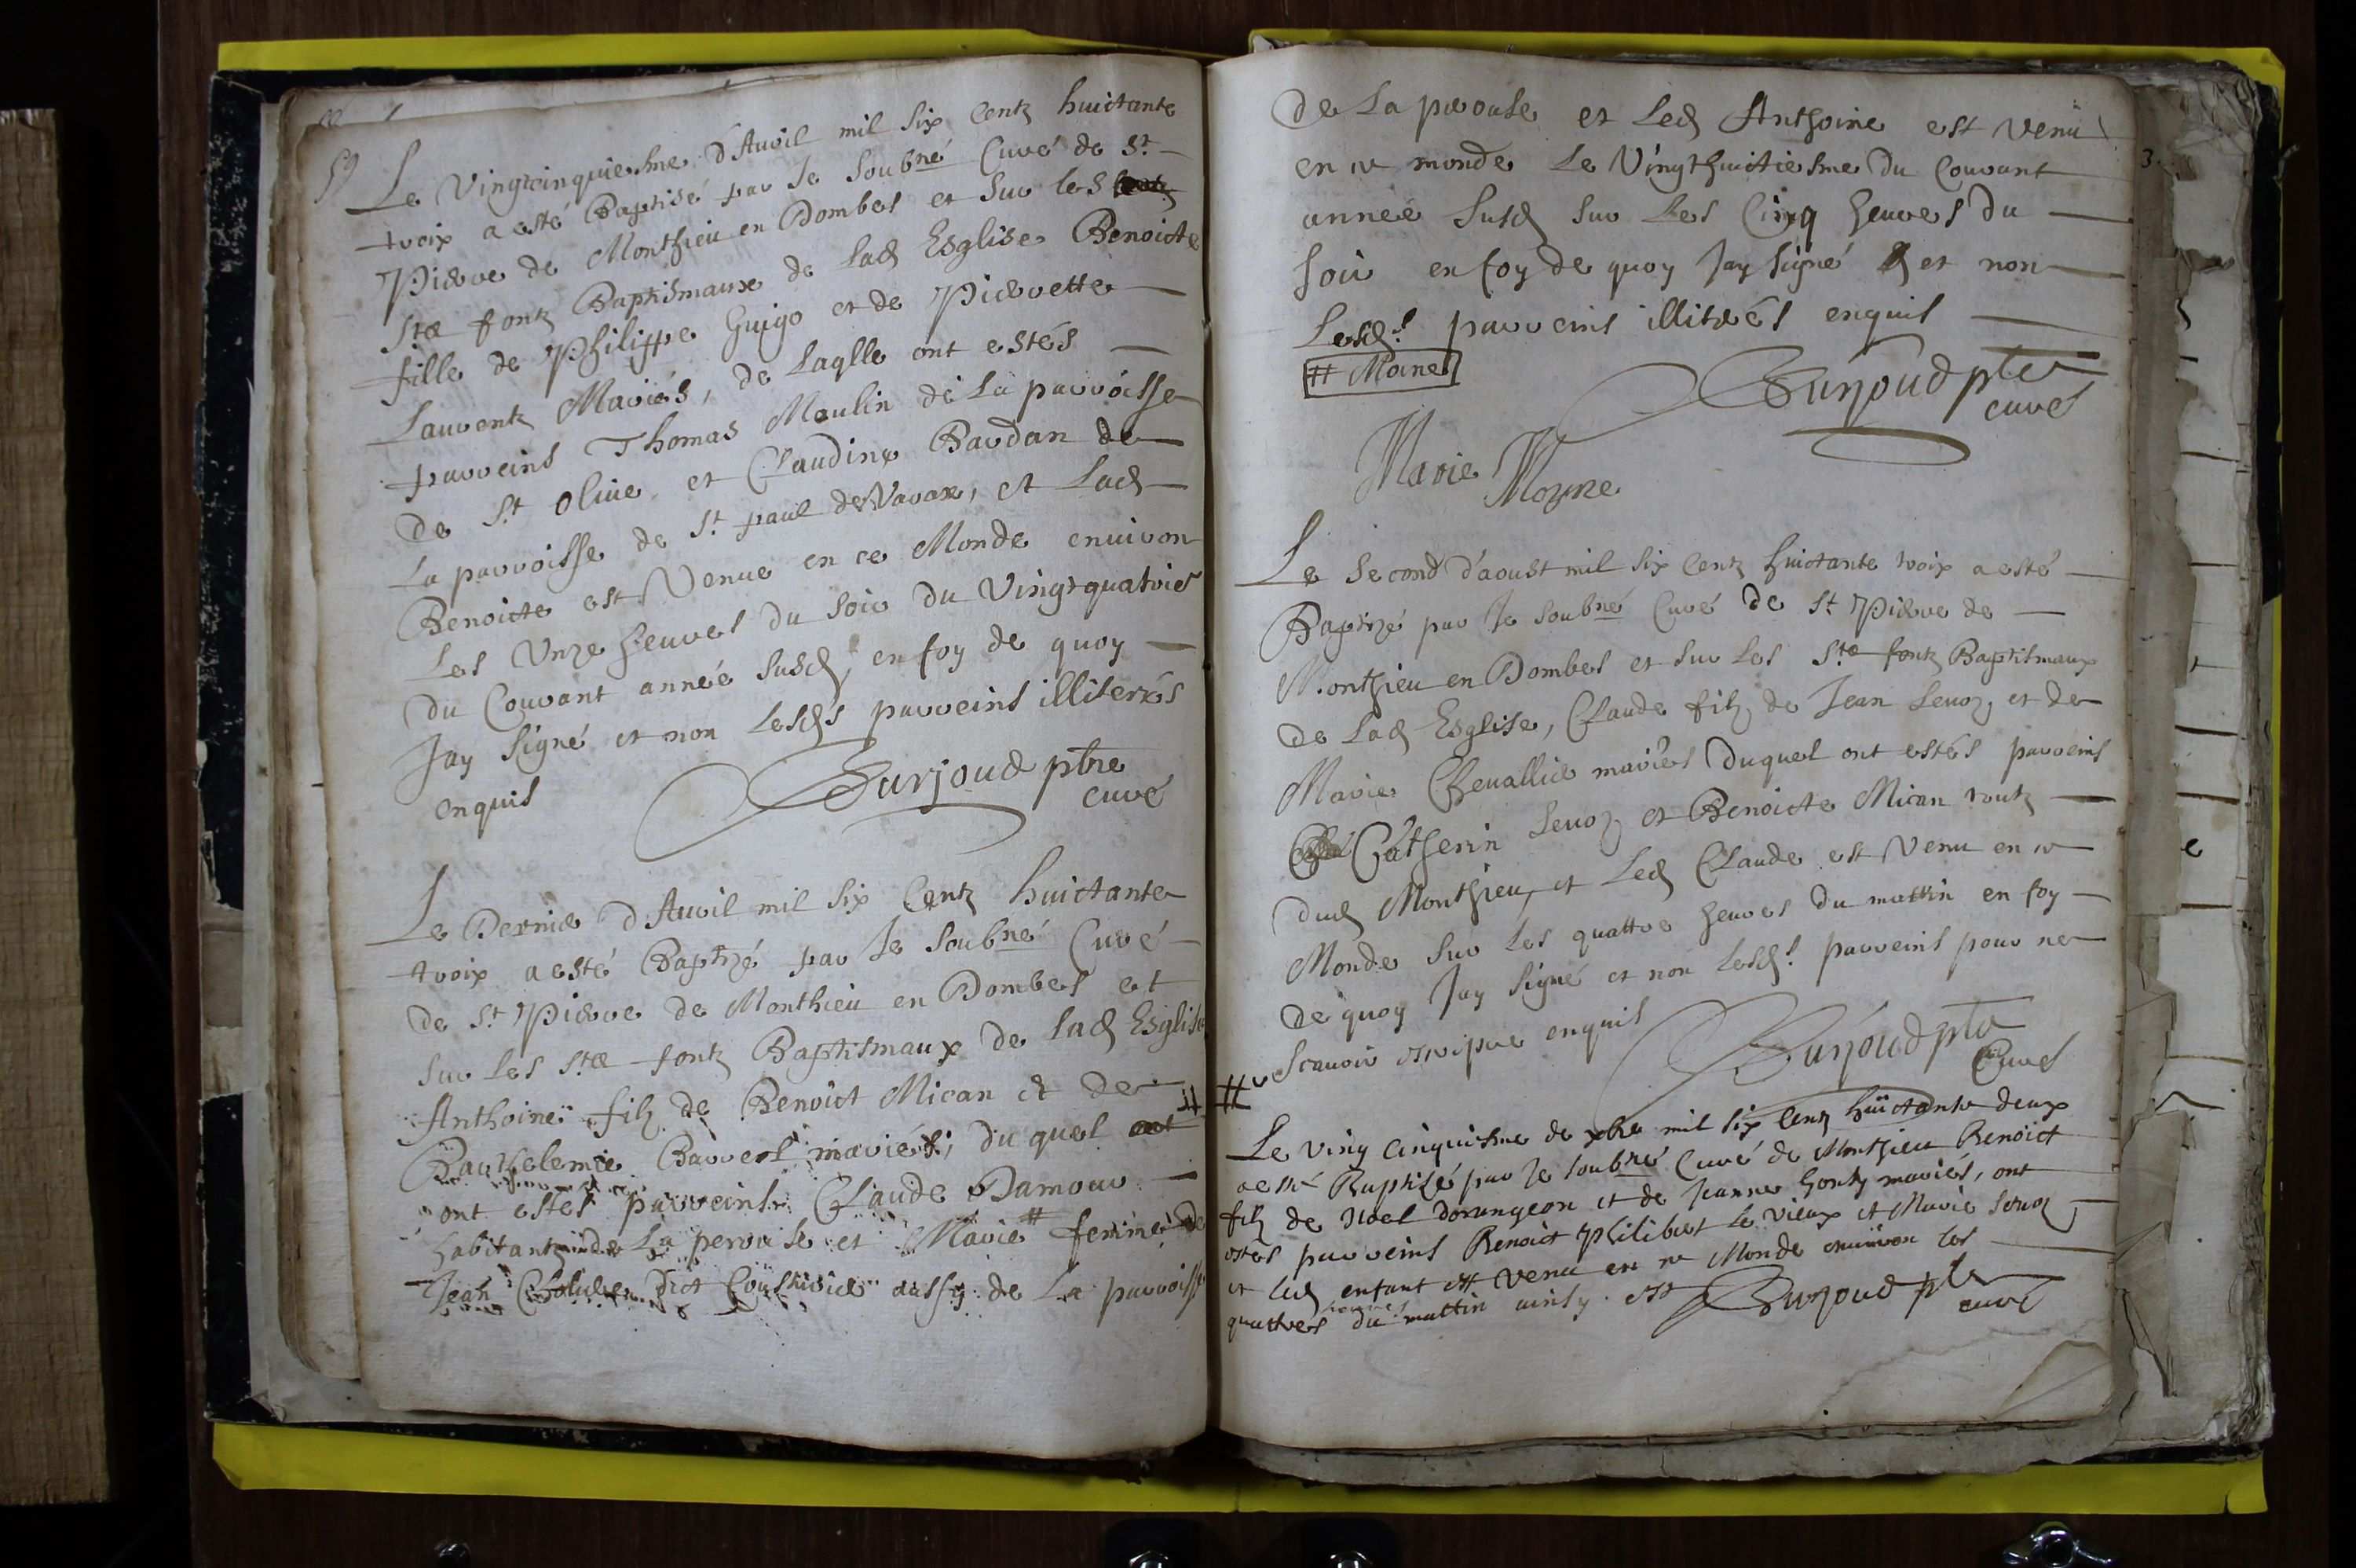 Le Vingtcinquiesme d'Auril mil six Centz huictante
troix a esté Baptisé par Je soubné Curé de St
Pierre de Monthieu en Dombes et sur les
stes fontz Baptismaux de lad Esglise Benoicte
fille de Philippe Guigo et de Pierrette
Laurentz Mariés, de Laqlle ont estés
parreins Thomas Moulin de La parroisse
de St Oliue et Claudine Bardan de
La parroisse de St paul de Varax, et Lad
Benoicte est Venue en ce Monde enuiron
Les Vnze heures du soir du Vingtquatries
du Courant année susd, en foy de quoy
Jay signé et non Lesds parreins illiterés
enquis
Burjoud ptre
curé
Le Dernier d'Auril mil six Centz huictante
troix a esté Baptizé par Je soubné Curé
de St Pierre de Monthieu en Dombes et
sur Les stes fontz Baptismaux de lad Esglise
Anthoine filz de Benoict Mican et de
Barthelemie mariés, du quel
ont estés parreins Claude Damour
habitant de La perouse et Marie # femme de
Jean dict aussy de La parroisse
de La perouse et Led Anthoine est venu
en ce monde Le Vingthuictiesme du Courant
année susd sur Les Cinq heures du
soir en foy de quoy Jay signé et non
Lesds parreins illiterés enquis
# Moine
Burjoud ptre
curé
Marie Moyne
Le second d'aoust mil six Centz huictante troix a esté
Baptizé par Je soubné Curé de St Pierre de
Monthieu en Dombes et sur Les Stes fontz Baptismaux
de Lad Esglise, Claude filz de Jean Leuoz et de
Marie Cheuallier mariés Duquel ont estés parreins
Catherin Leuoz et Benoicte Mican toutz
dud Monthieu, et Led Claude est Venu en ce
Monde sur Les quattre heures du mattin en foy
de quoy Jay signé et non Lesds parreins pour ne
scauoir escripre enquis
Burjoud ptre
Curé
#
Le ving cinquiesme de xbre mil six Centz huictante deux
a esté Baptisé par Je soubné Curé de Monthieu Benoict
filz de Noel Dorangeon et de Jeanne mariés, ont
estés parreins Benoict Philibert Le vieux et Marie Leuoz
et Led enfant est venu en ce Monde enuiron les
quattres heures du mattin ainsy est Burjoud ptre
curé